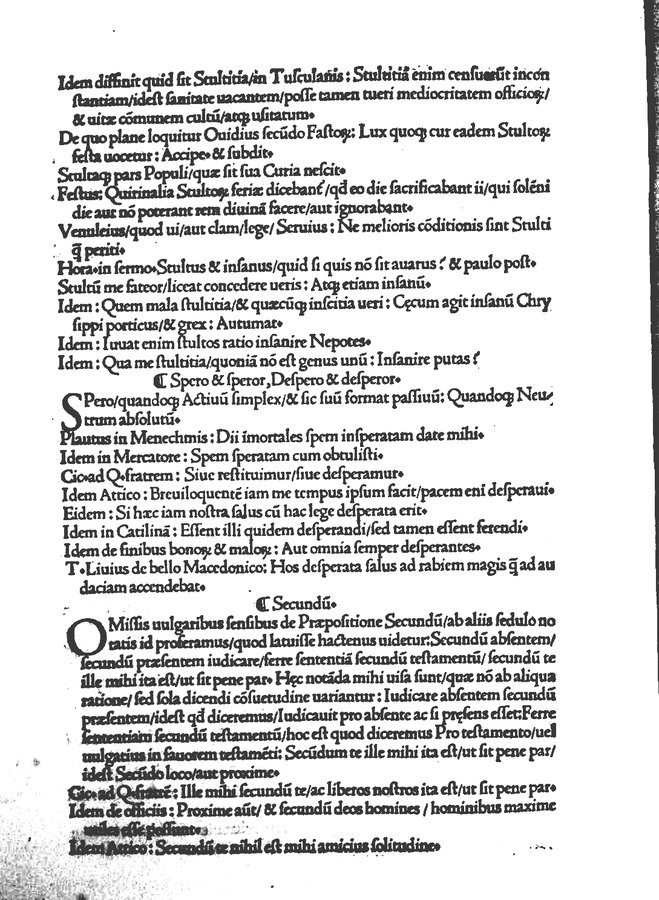 Idem diffinit quid sit Stultitia/in Tusculanis: Stultitiã enim censuerũt incon
stantiam/idest sanitate uacantem/posse tamen tueri mediocritatem officioꝝ/
& uitæ cõmunem cultũ/atqꝫ usitatum.
De quo plane loquitur Ouidius secũdo Fastoꝝ: Lux quoqꝫ cur eadem Stultoꝝ
festa uocetur: Accipe. & subdit.
Stultaqꝫ pars Populi/quæ sit sua Curia nescit.
Festus: Quirinalia Stultoꝝ feriæ dicebant᷑/qđ eo die sacrificabant ii/qui solẽni
die aut nõ poterant rem diuinã facere/aut ignorabant.
Venuleius/quod ui/aut clam/lege/ Seruius: Ne melioris cõditionis sint Stulti
q̃ periti.
Hora. in sermo. Stultus & insanus/quid si quis nõ sit auarus? & paulo post.
Stultũ me fateor/liceat concedere ueris: Atqꝫ etiam insanũ.
Idem: Quem mala stultitia/& quæcũqꝫ inscitia ueri: Cęcum agit insanũ Chry
sippi porticus/& grex: Autumat.
Idem: Iuuat enim stultos ratio insanire Nepotes.
Idem: Qua me stultitia/quoniã nõ est genus unũ: Insanire putas?
¶ Spero & speror, Despero & desperor.
SPero/quandoqꝫ Actiuũ simplex/& sic suũ format passiuũ: Quandoqꝫ Neu
trum absolutũ.
Plautus in Menechmis: Dii ĩmortales spem insperatam date mihi.
Idem in Mercatore: Spem speratam cum obtulisti.
Cic. ad Q. fratrem: Siue restituimur/siue desperamur.
Idem Attico: Breuiloquentẽ iam me tempus ipsum facit/pacem eni desperaui.
Eidem: Si hæc iam nostra salus cũ hac lege desperata erit.
Idem in Catilinã: Essent illi quidem desperandi/sed tamen essent ferendi.
Idem de finibus bonoꝝ & maloꝝ: Aut omnia semper desperantes.
T. Liuius de bello Macedonico: Hos desperata salus ad rabiem magis q̃ ad au
daciam accendebat.
¶ Secundũ.
OMissis uulgaribus sensibus de Præpositione Secundũ/ab aliis sedulo no
tatis id proferamus/quod latuisse hactenus uidetur: Secundũ absentem/
secundũ præsentem iudicare/ferre sententiã secundũ testamentũ/ secundũ te
ille mihi ita est/ut sit pene par. Hęc notãda mihi uisa sunt/quæ nõ ab aliqua
ratione/ sed sola dicendi cõsuetudine uariantur: Iudicare absentem secundũ
præsentem/idest qđ diceremus/Iudicauit pro absente ac si pręsens esset: Ferre
sententiam secundũ testamentũ/hoc est quod diceremus Pro testamento/uel
uulgatius in fauorem testamẽti: Secũdum te ille mihi ita est/ut sit pene par/
idest Secũdo loco/aut proxime.
Cic. ad Q. fratrẽ: Ille mihi secundũ te/ac liberos nostros ita est/ut sit pene par.
Idem de officiis: Proxime aũt/ & secundũ deos homines / hominibus maxime
utiles esse possunt.
Idem Attico: Secundũ te nihil est mihi amicius solitudine.